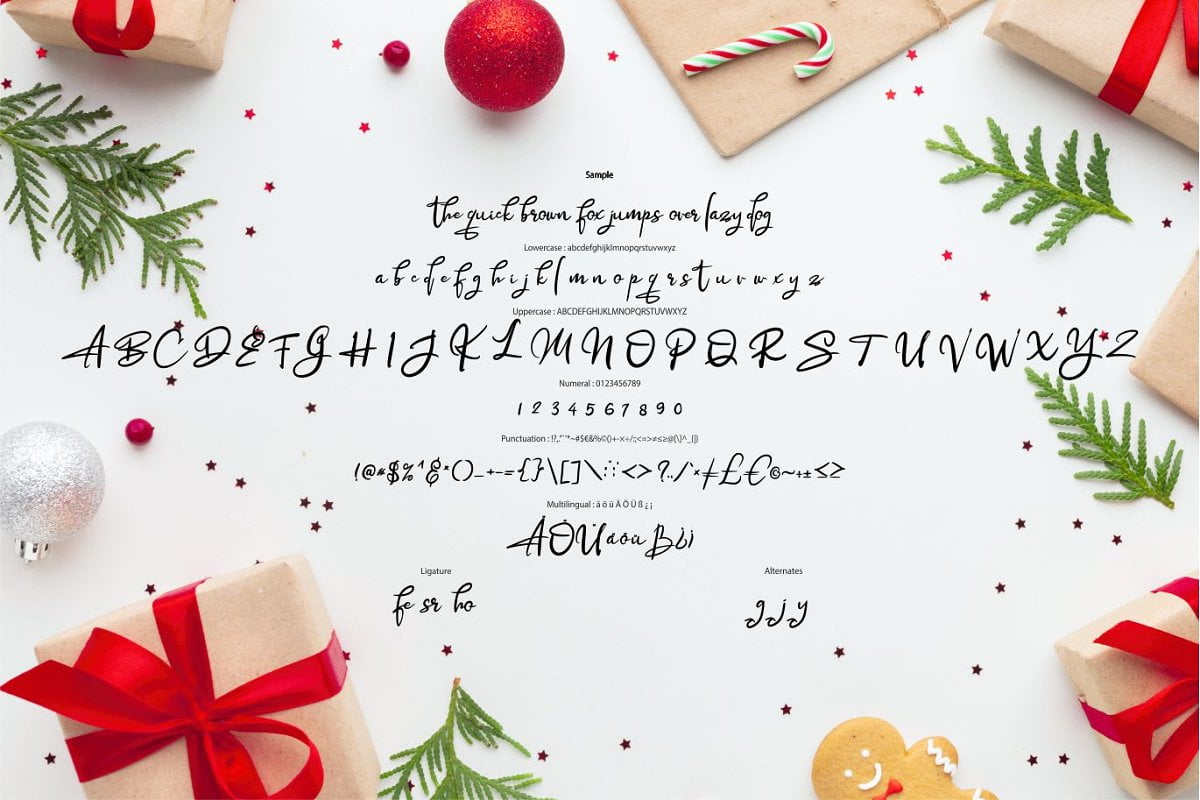 Sample
the quick brown fox jumps over lazy dog
Lowercase : abcdefghijklmnopqrstuvwxyz
a b c d e f g h i j k l m n o p q r s t u v w x y z
Uppercase : ABCDEFGHIJKLMNOPQRSTUVWXYZ
A B C D E F G H I J K L M N O P Q R S T U V W X Y Z
Numeral : 0123456789
1 2 3 4 5 6 7 8 9 0
Punctuation : !?,."'"*~#$€&%©()+-×÷/:;<=>≠≤≥@[\]^_{|}
!@#$%^&*()_+-={}\[]\:;<>?../`×≠£€©~+±≤≥
Multilingual : ä ö ü Ä Ö Ü ß ¿ ¡
ÄÖÜäöüß¿¡
Ligature Alternates
fe sr ho g j y